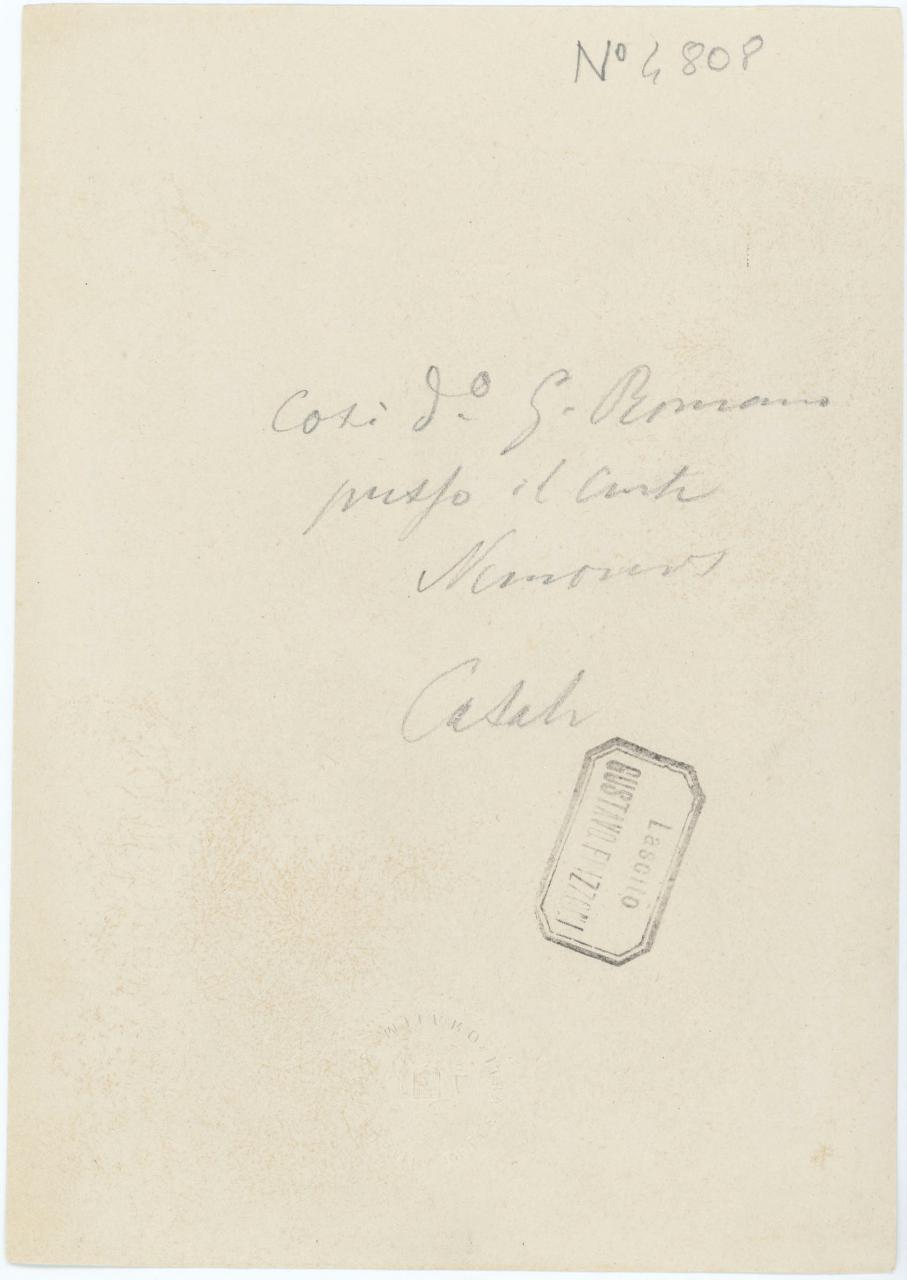 Nº 4808
Così d.º G. Romano
presso il Conte
Casale
Lascito
GUSTAVO FRIZZONI